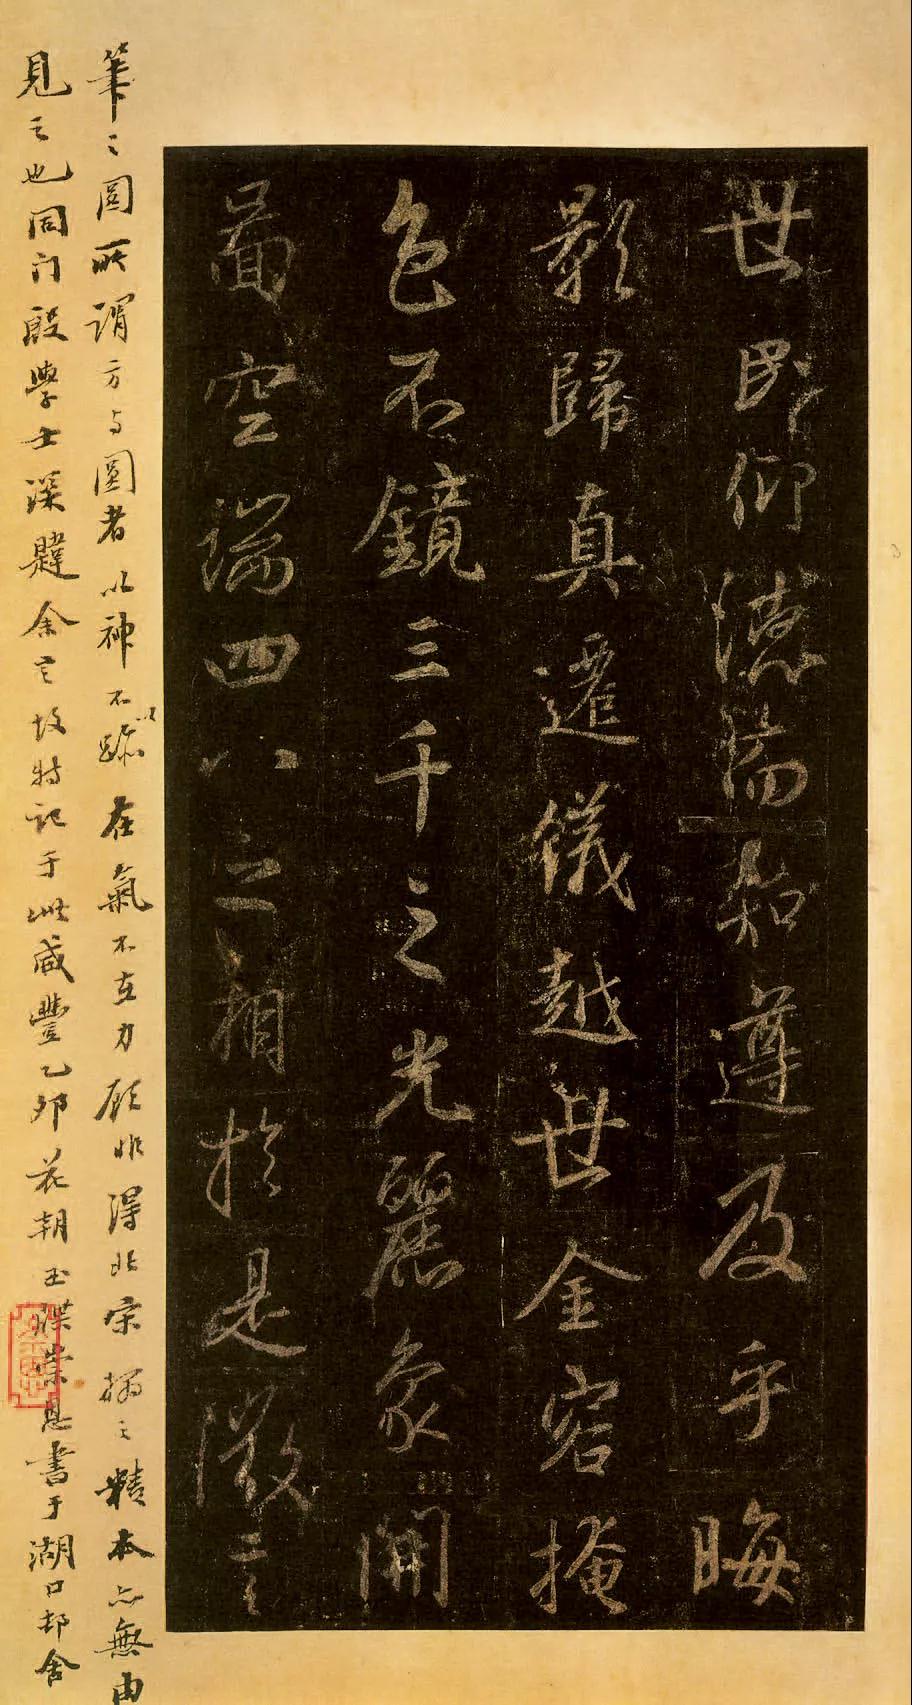 世民仰德而知遵及乎晦
影歸真遷儀越世金容掩
色不鏡三千之光麗象開
圖空端四八之相於是微言
筆〻圓所謂方与圓者以神不以跡在氣不在力顧非得北宋搨之精本亦無由
見之也同门殷學士深韙余言故特記于此咸豐乙卯花朝玉牒崇恩書于湖口邨舍